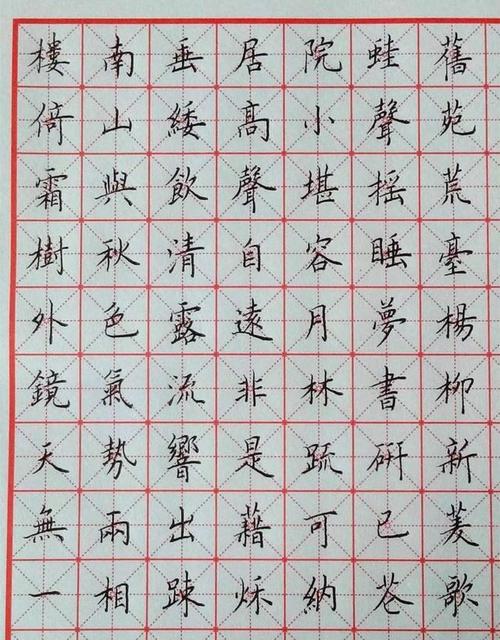 舊苑荒臺楊柳新菱歌
蛙聲摇睡夢書研已苍
院小堪容月林疏可納
居高聲自遠非是藉秌
垂緌飲清露流響出疎
南山與秋色氣勢兩相
樓倚霜樹外鏡天無一